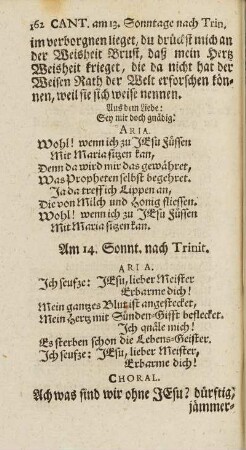 162 CANT. am 13. Sonntage nach Trin.
im verborgnen lieget, du drückst mich an
der Weisheit Brust, daß mein Hertz
Weisheit krieget, die da nicht hat der
Weisen Rath der Welt erforschen kön-
nen, weil sie sich weise nennen.
Aus dem Liede:
Sey mir doch gnädig!
ARIA.
Wohl! wenn ich zu JEsu Füssen
Mit Maria sitzen kan,
Denn da wird mir das gewähret,
Was Propheten selbst begehret.
Ja da treff ich Lippen an,
Die von Milch und Honig fliessen.
Wohl! wenn ich zu JEsu Füssen
Mit Maria sitzen kan.
Am 14. Sonnt. nach Trinit.
ARIA.
Ich seufze: JEsu, lieber Meister
Erbarme dich!
Mein gantzes Blut ist angestecket,
Mein Hertz mit Sünden-Gifft beflecket.
Ich quäle mich!
Es sterben schon die Lebens-Geister.
Ich seufze: JEsu, lieber Meister,
Erbarme dich!
CHORAL.
Ach was sind wir ohne JEsu? dürftig,
jämmer-